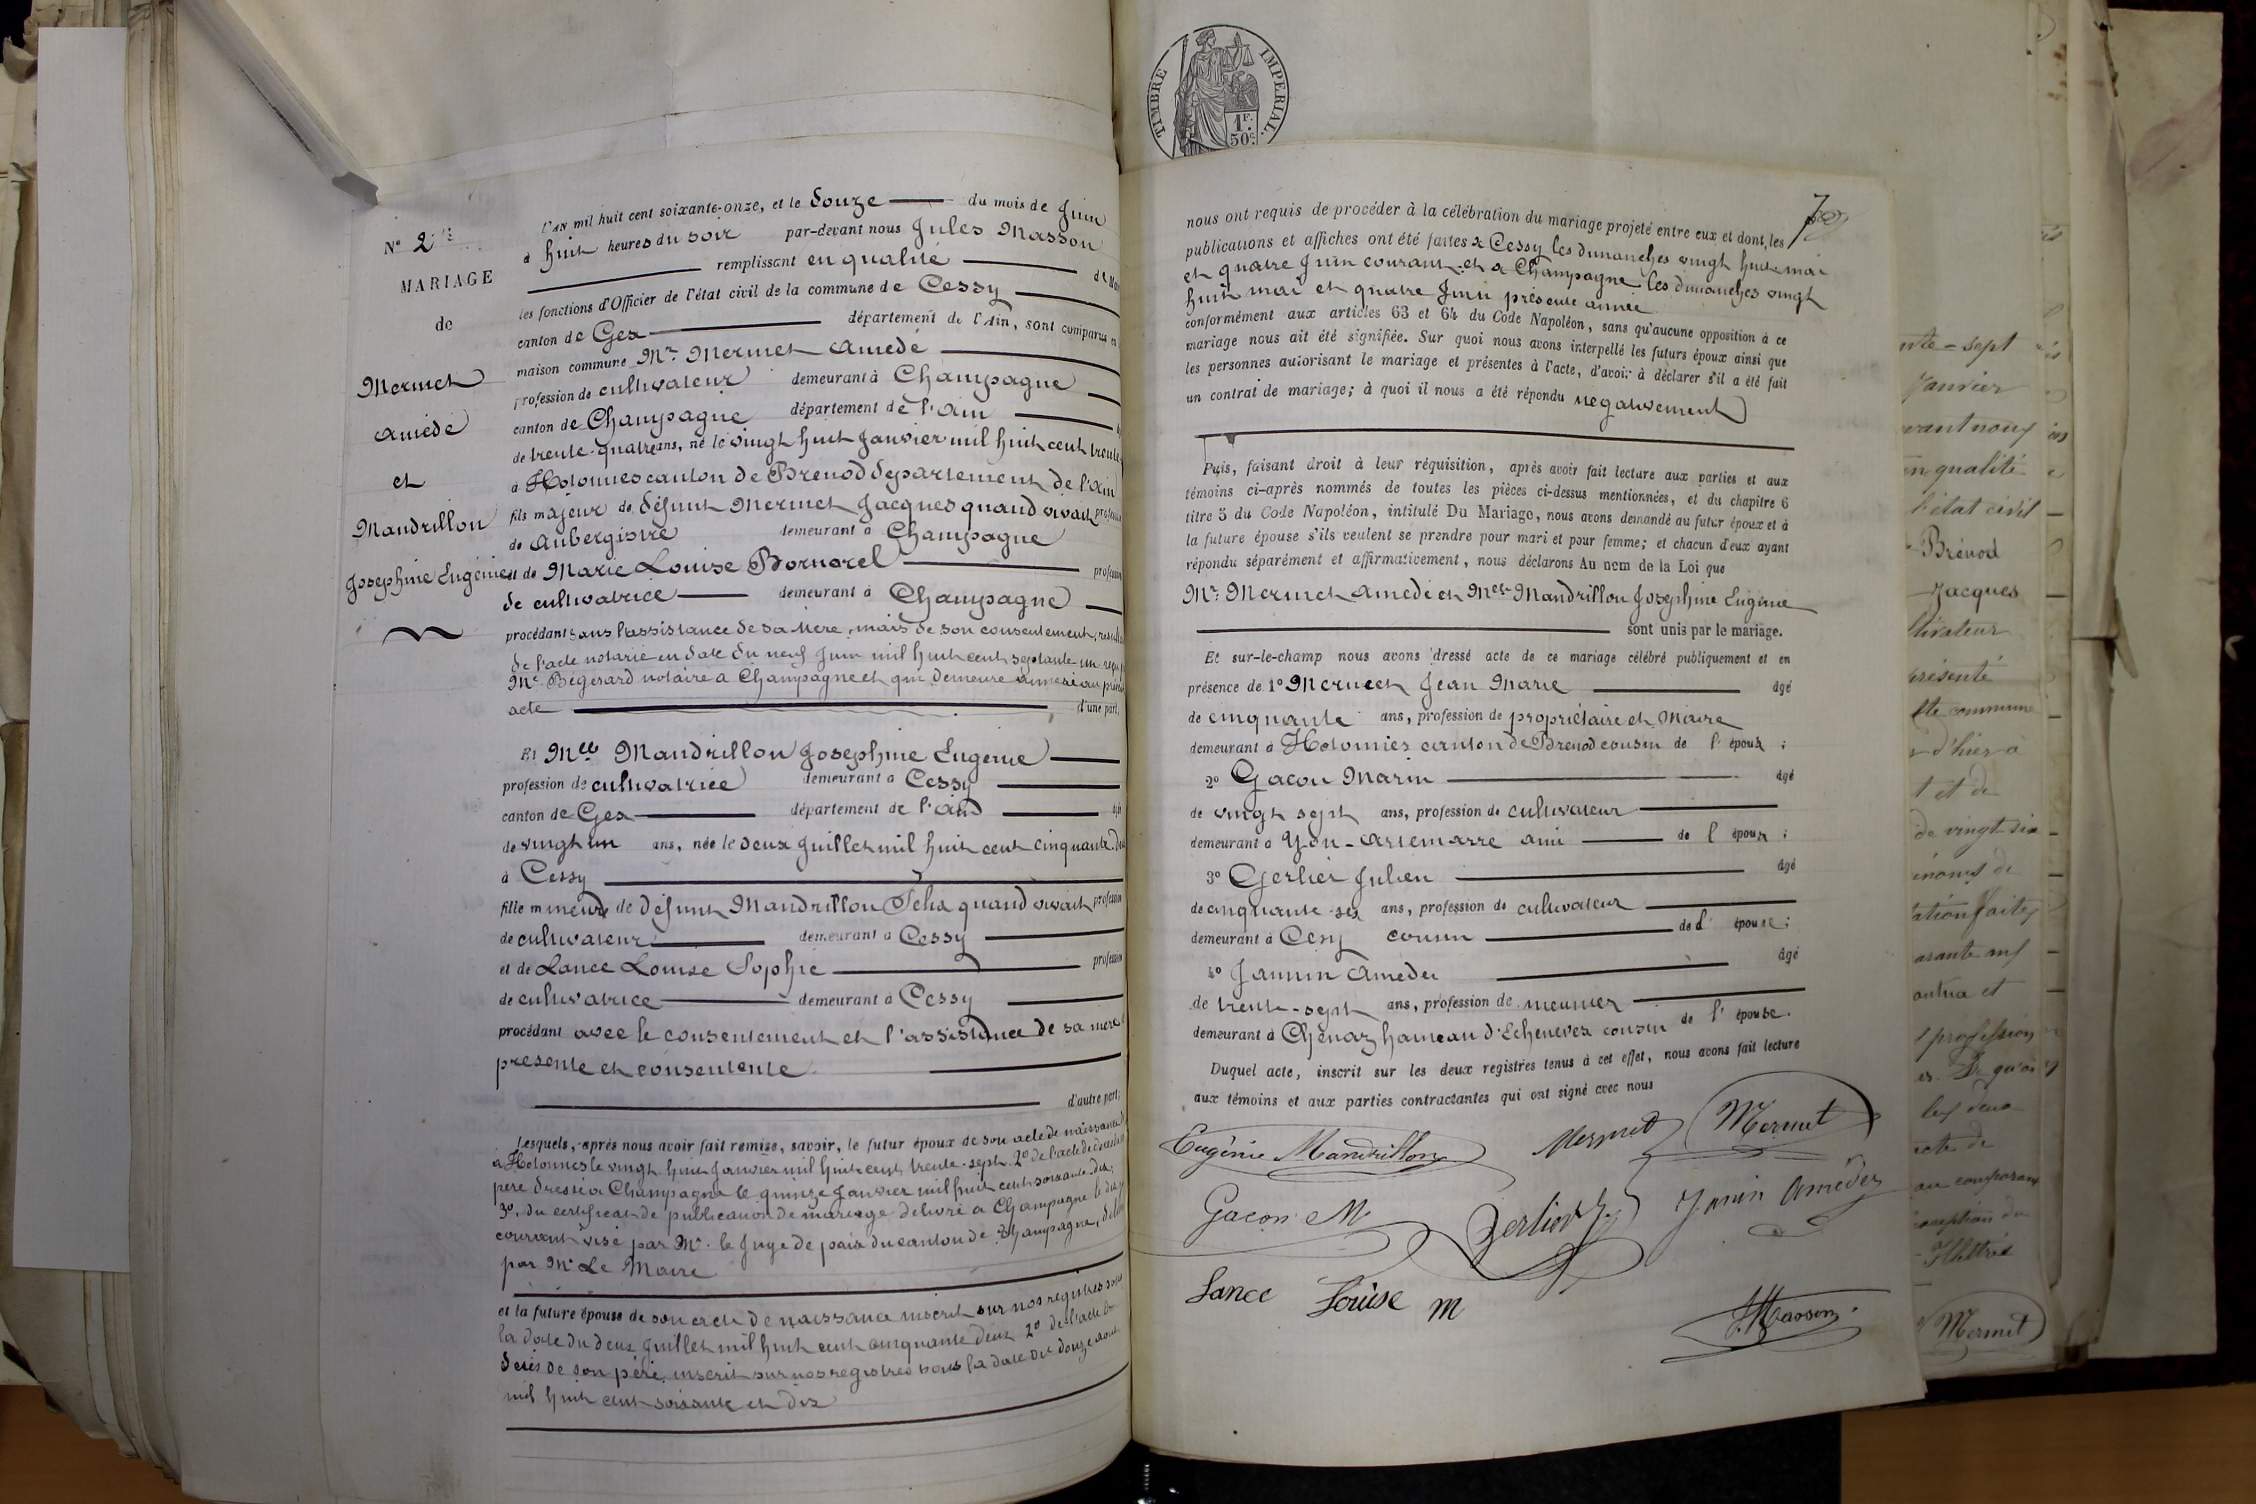 N° 2
MARIAGE
de
Mermet
Amédé
et
Mandrillon
Josephine Eugénie
L'AN mil huit cent soixante-onze, et le Douze du mois de Juin
à huit heures du soir par-devant nous Jules Masson
remplissant en qualité de
les fonctions d'Officier de l'état civil de la commune de Cessy
canton de Gex département de l'Ain, sont comparus en
maison commune Mr. Mermet Amédé
profession de cultivateur demeurant à Champagne
canton de Champagne département de l'Ain
de trente-quatre ans, né le vingt huit Janvier mil huit cent trente
à Hotonnes canton de Brenod département de l'Ain
fils majeur de défunt Mermet Jacques quand vivait profession
de Aubergiste demeurant à Champagne
et de Marie Louise Bornarel profession
de cultivatrice demeurant à Champagne
procédant sans l'assistance de sa mère, mais de son consentement,
de l'acte notarié en date du neuf Juin mil huit cent septante un reçu
Me. Bégérard notaire à Champagne et qui demeure annexé au
acte d'une part,
Et Melle Mandrillon Josephine Eugénie
profession de cultivatrice demeurant à Cessy
canton de Gex département de l'Ain
de vingt un ans, née le deux Juillet mil huit cent cinquante
à Cessy
fille mineure de défunt Mandrillon Felix quand vivait profession
de cultivateur demeurant à Cessy
et de Lance Louise Sophie profession
de cultivatrice demeurant à Cessy
procédant avec le consentement et l'assistance de sa mère
présente et consentente
d'autre part;
Lesquels, après nous avoir fait remise, savoir, le futur époux de son acte de naissance
à Hotonnes le vingt huit Janvier mil huit cent trente-sept 2° de l'acte de décès
père dressé à Champagne le quinze Janvier mil huit cent soixante dix;
3°. du certificat de publication de mariage délivré à Champagne le
courant visé par Mr. le Juge de paix du canton de Champagne,
par Mr Le Maire
et la future épouse de son acte de naissance inscrit sur nos registres sous
la date du deux Juillet mil huit cent cinquante deux 2° de l'acte de
décès de son père, inscrit sur nos registres sous la date du douze aout
mil huit cent soixante et dix
TIMBRE IMPERIAL.
1F.
50c.
7
nous ont requis de procéder à la célébration du mariage projeté entre eux et dont les
publications et affiches ont été faites à Cessy les dimanches vingt huit mai
et quatre Juin courant et à Champagne les dimanches vingt
huit mai et quatre Juin présente année
conformément aux articles 63 et 64 du Code Napoléon, sans qu'aucune opposition à ce
mariage nous ait été signifiée. Sur quoi nous avons interpellé les futurs époux ainsi que
les personnes autorisant le mariage et présentes à l'acte, d'avoir à déclarer s'il a été fait
un contrat de mariage; à quoi il nous a été répondu négativement
Puis, faisant droit à leur réquisition, après avoir fait lecture aux parties et aux
témoins ci-après nommés de toutes les pièces ci-dessus mentionnées, et du chapitre 6
titre 5 du Code Napoléon, intitulé Du Mariage, nous avons demandé au futur époux et à
la future épouse s'ils veulent se prendre pour mari et pour femme; et chacun d'eux ayant
répondu séparément et affirmativement, nous déclarons Au nom de la Loi que
Mr. Mermet Amédé et Melle Mandrillon Josephine Eugénie
sont unis par le mariage.
Et sur-le-champ nous avons dressé acte de ce mariage célébré publiquement et en
présence de 1° Mermet Jean Marie âgé
de cinquante ans, profession de propriétaire et Maire
demeurant à Hotonnes canton de Brenod cousin de l'époux;
2° Gacon Marin âgé
de vingt sept ans, profession de cultivateur
demeurant à Yon-Artemarre ami de l'époux;
3° Gerlier Julien âgé
de cinquante-six ans, profession de cultivateur
demeurant à Cessy cousin de l'épouse;
4° Jannin Amédée âgé
de trente-sept ans, profession de meunier
demeurant à Chenaz hameau d'Echenevex cousin de l'épouse.
Duquel acte, inscrit sur les deux registres tenus à cet effet, nous avons fait lecture
aux témoins et aux parties contractantes qui ont signé avec nous
Eugénie Mandrillon Mermet Mermet
Gacon M Gerlier J. Janin Amédée
Lance Louise m
J. Masson
nte-sept
Janvier
vant nous
en qualité
l'état civil
Brénod
Jacques
ltivateur
présenté
tte commune
d'hier à
t et de
de vingt six
énoms de
ation faite
arante ans
profession
les deux
acte de
au comparant
Mermet